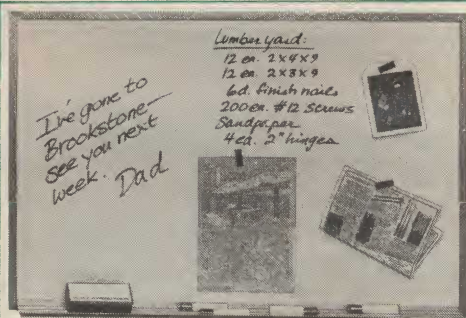 I've gone to
Brookstone—
see you next
week. Dad
Lumber yard:
12 ea. 2x4x9
12 ea. 2x3x9
6d. finish nails
200 ea. #12 screws
Sandpaper
4 ea. 2" hinges